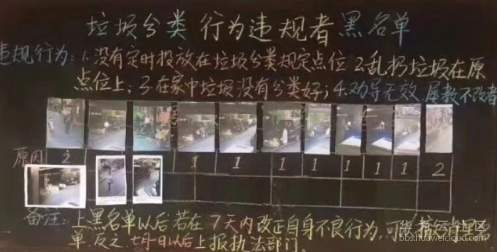 垃圾分类 行为违规者 黑名单
违规行为：1.没有定时投放在垃圾分类规定点位 2.乱扔垃圾在原
点位上；3.在家中垃圾没有分类好；4.劝导无效 屡教不改者
原因 2 1 1 1 1 1 1 1 2
备注：上黑名单以后若在7天内改正自身不良行为，可
单.反之 七日以后上报执法部门.